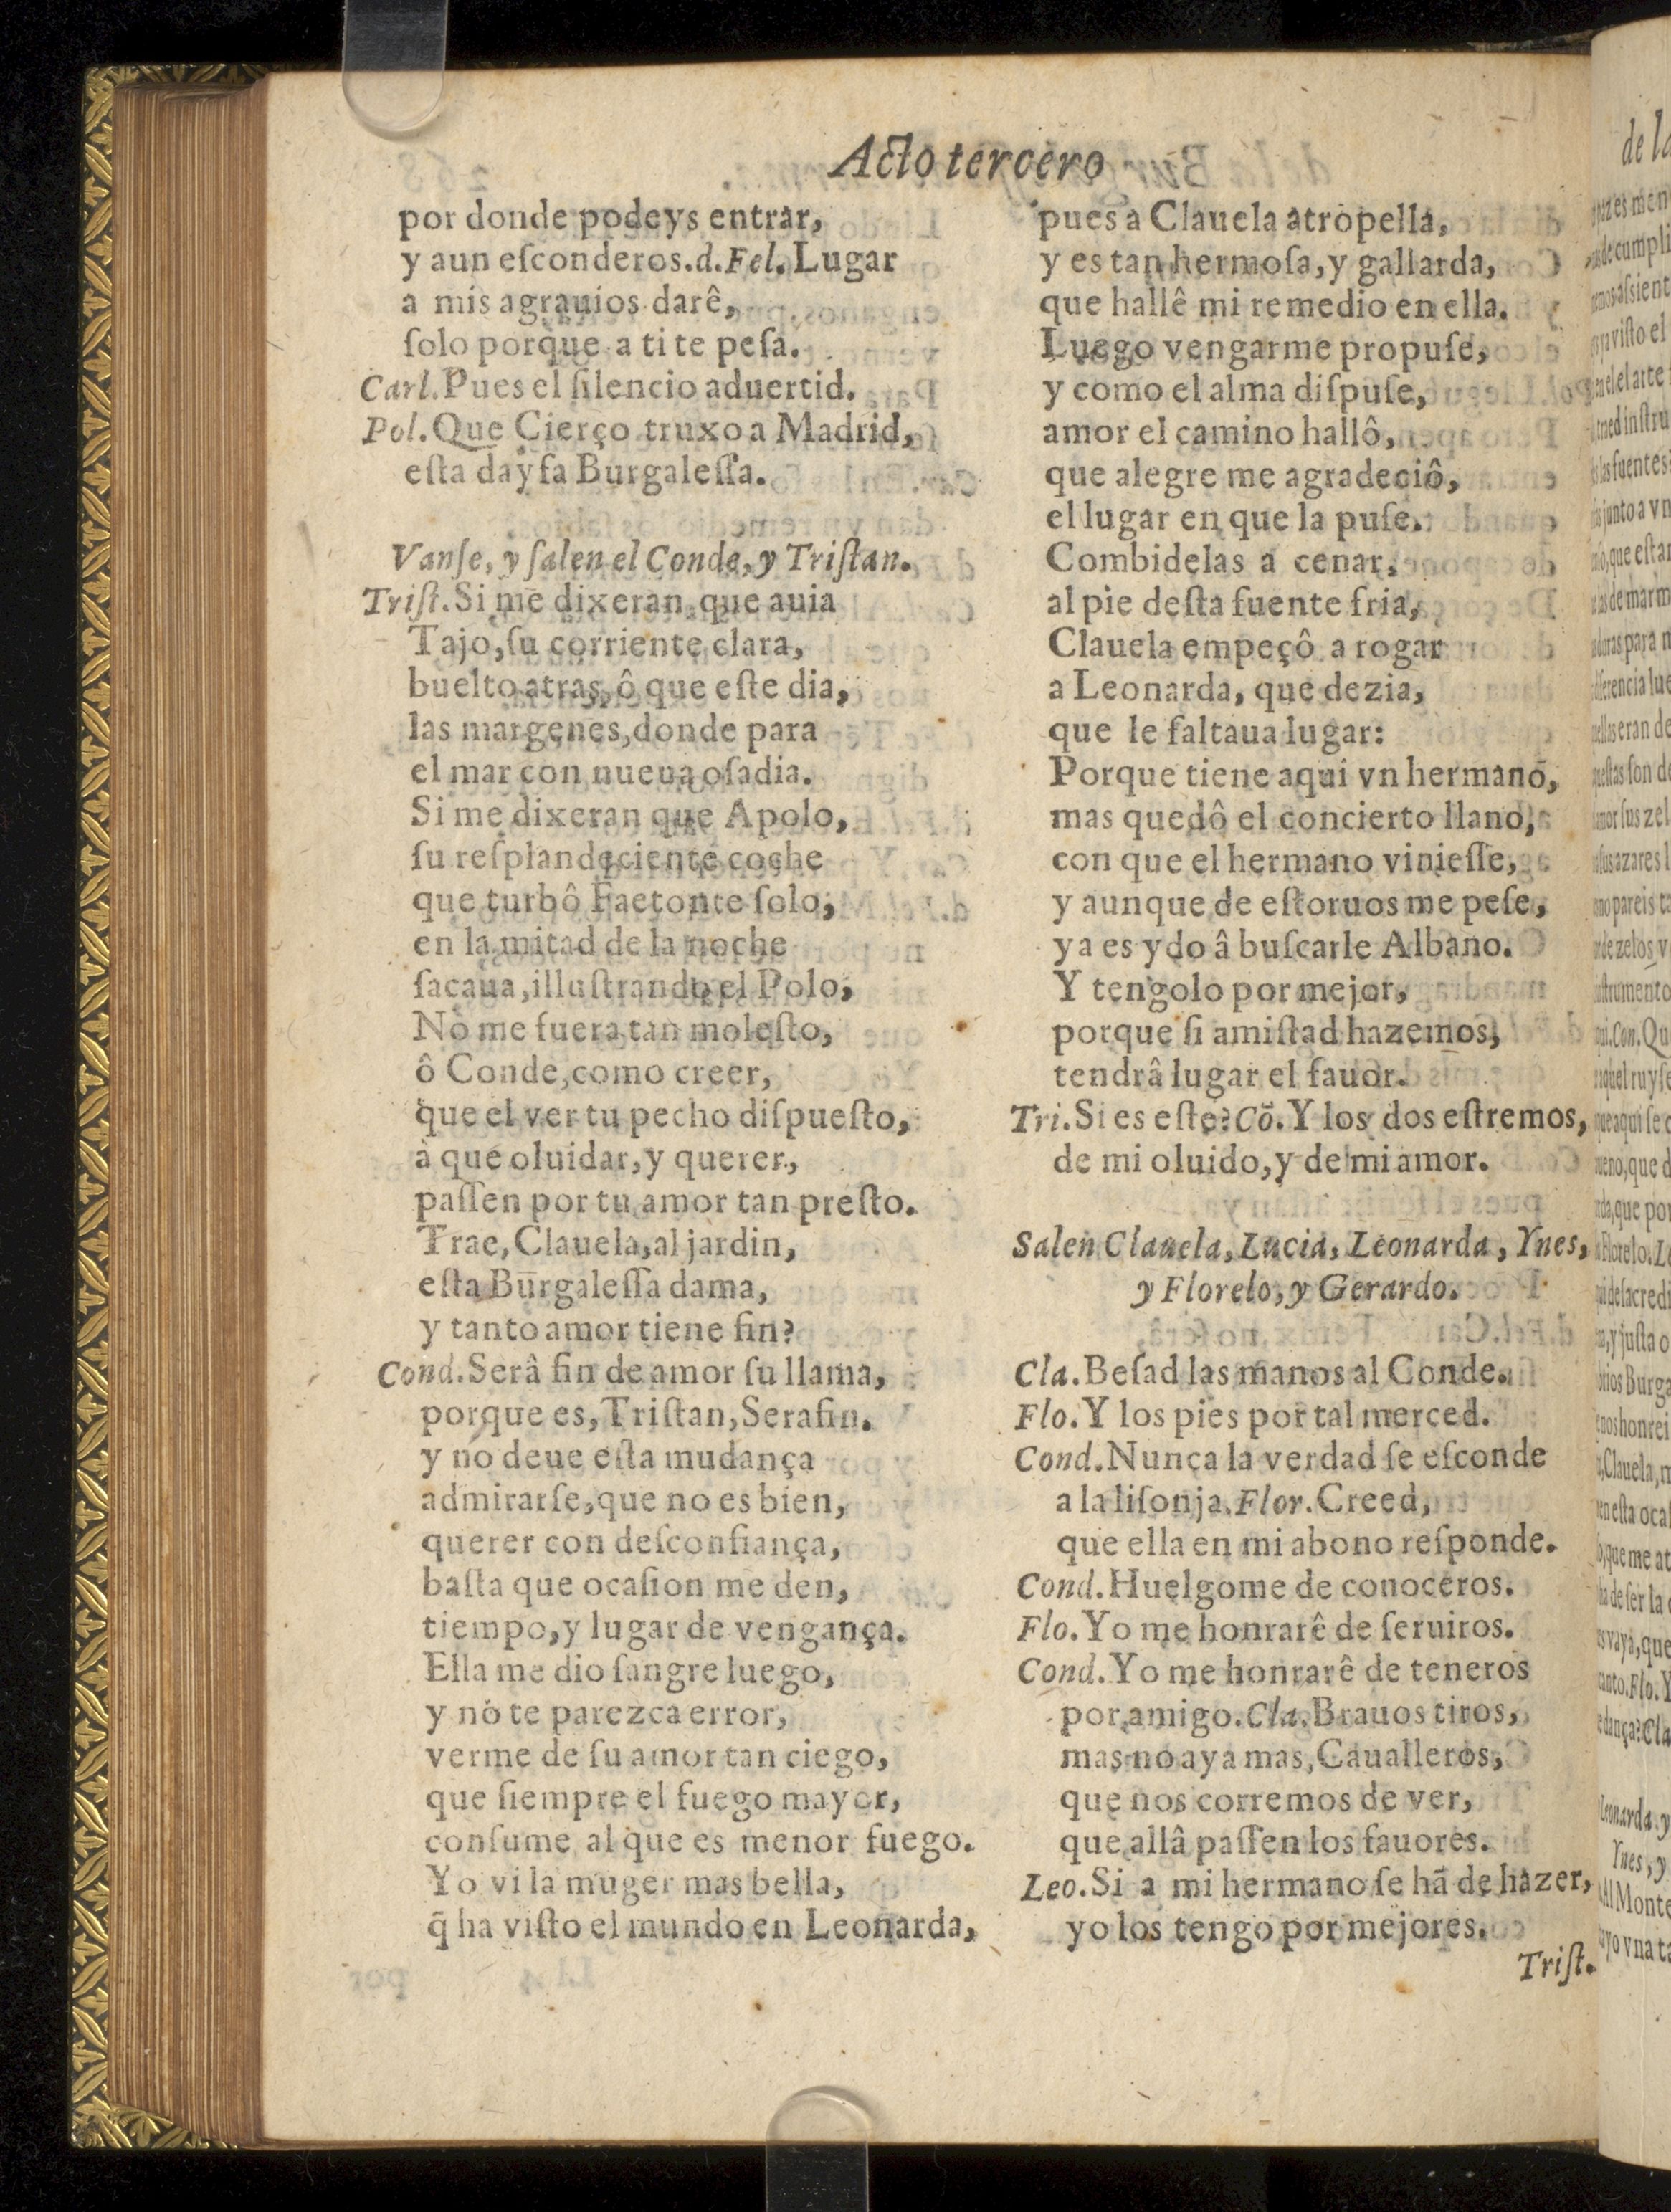 Acto tercero
por donde podeys entrar,
y aun eſconderos. d. Fel. Lugar
a mis agrauios darê,
ſolo porque a ti te peſa.
Carl. Pues el ſilencio aduertid.
Pol. Que Cierço truxo a Madrid,
eſta dayfa Burgaleſſa.
Vanſe, y ſalen el Conde, y Triſtan.
Triſt. Si me dixeran, que auia
Tajo, ſu corriente clara,
buelto atras, ô que eſte dia,
las margenes, donde para
el mar con nueua oſadia.
Si me dixeran que Apolo,
ſu reſplandeciente coche
que turbô Faetonte ſolo,
en la mitad de la noche
ſacaua, illuſtrando el Polo,
No me fuera tan moleſto,
ô Conde, como creer,
que el ver tu pecho diſpueſto,
à que oluidar, y querer,
paſſen por tu amor tan preſto.
Trae, Clauela, al jardin,
eſta Burgaleſſa dama,
y tanto amor tiene fin?
Cond. Serâ fin de amor ſu llama,
porque es, Triſtan, Serafin.
y no deue eſta mudança
admirarſe, que no es bien,
querer con deſconfiança,
baſta que ocaſion me den,
tiempo, y lugar de vengança.
Ella me dio ſangre luego,
y no te parezca error,
verme de ſu amor tan ciego,
que ſiempre el fuego mayor,
conſume al que es menor fuego.
Yo vi la muger mas bella,
q̃ ha viſto el mundo en Leonarda,
pues a Clauela atropella,
y es tan hermoſa, y gallarda,
que hallê mi remedio en ella.
Luego vengarme propuſe,
y como el alma diſpuſe,
amor el camino hallô,
que alegre me agradeciô,
el lugar en que la puſe.
Combidelas a cenar,
al pie deſta fuente fria,
Clauela empeçô a rogar
a Leonarda, que dezia,
que le faltaua lugar:
Porque tiene aqui vn hermano,
mas quedô el concierto llano,
con que el hermano vinieſſe,
y aunque de eſtoruos me peſe,
ya es ydo â buſcarle Albano.
Y tengolo por mejor,
porque ſi amiſtad hazemos,
tendrâ lugar el fauor.
Tri. Si es eſte? Cõ. Y los dos eſtremos,
de mi oluido, y de mi amor.
Salen Clauela, Lucia, Leonarda, Ynes,
y Florelo, y Gerardo.
Cla. Beſad las manos al Conde.
Flo. Y los pies por tal merced.
Cond. Nunca la verdad ſe eſconde
a la liſonja. Flor. Creed,
que ella en mi abono reſponde.
Cond. Huelgome de conoceros.
Flo. Yo me honrarê de ſeruiros.
Cond. Yo me honrarê de teneros
por amigo. Cla. Brauos tiros,
mas no aya mas, Caualleros,
que nos corremos de ver,
que allâ paſſen los fauores.
Leo. Si a mi hermano ſe hã de hazer,
yo los tengo por mejores.
Triſt.